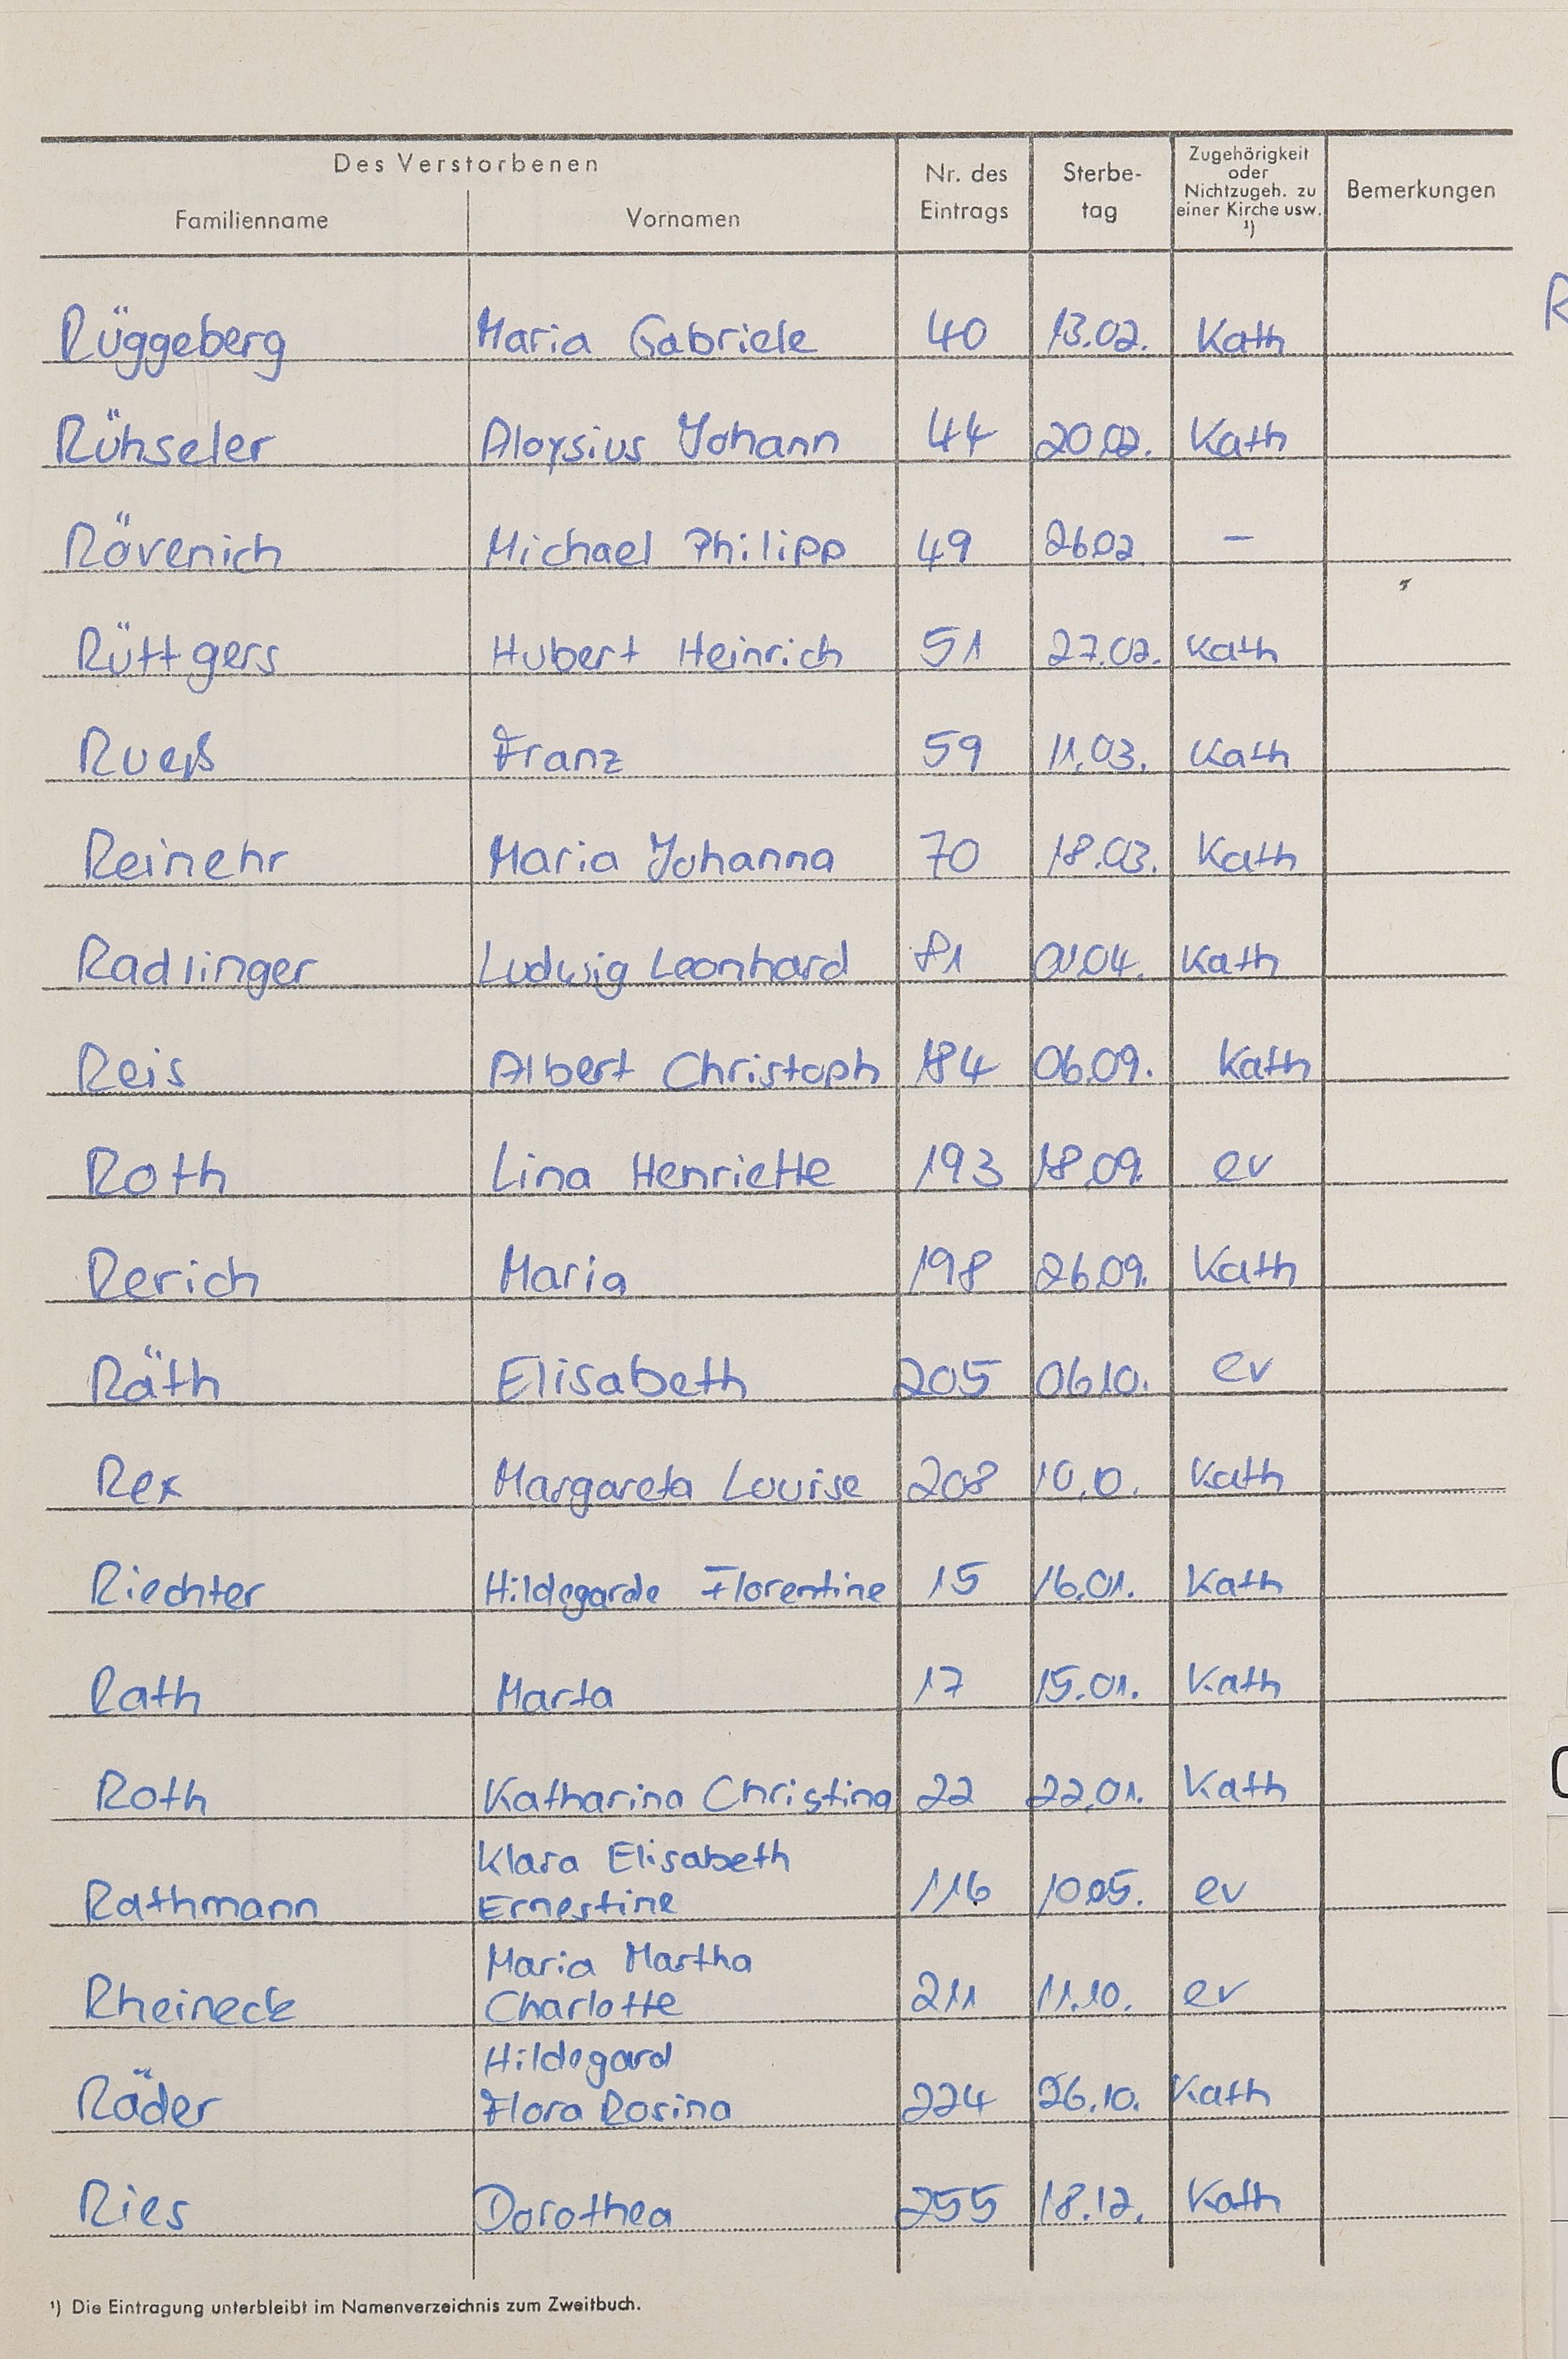 Des Verstorbenen
Familienname Vornamen Nr. des Eintrags Sterbe-tag Zugehörigkeit oder Nichtzugeh. zu einer Kirche usw. ¹) Bemerkungen
Rüggeberg Maria Gabriele 40 13.02. Kath
Rühseler Aloysius Johann 44 20.02. Kath
Rövenich Michael Philipp 49 26.02 —
Rüttgers Hubert Heinrich 51 27.02. Kath
Rueß Franz 59 11.03. Kath
Reinehr Maria Johanna 70 18.03. Kath
Radlinger Ludwig Leonhard 81 01.04. Kath
Reis Albert Christoph 184 06.09. Kath
Roth Lina Henriette 193 18.09. ev
Rerich Maria 198 26.09. Kath
Räth Elisabeth 205 06.10. ev
Rex Margareta Louise 208 10.10. Kath
Riechter Hildegarde Florentine 15 16.01. Kath
Rath Marta 17 15.01. Kath
Roth Katharina Christina 22 22.01. Kath
Klara Elisabeth
Rathmann Ernestine 116 10.05. ev
Maria Martha
Rheineck Charlotte 211 11.10. ev
Hildegard
Räder Flora Rosina 224 26.10. Kath
Ries Dorothea 255 18.12. Kath
¹) Die Eintragung unterbleibt im Namenverzeichnis zum Zweitbuch.